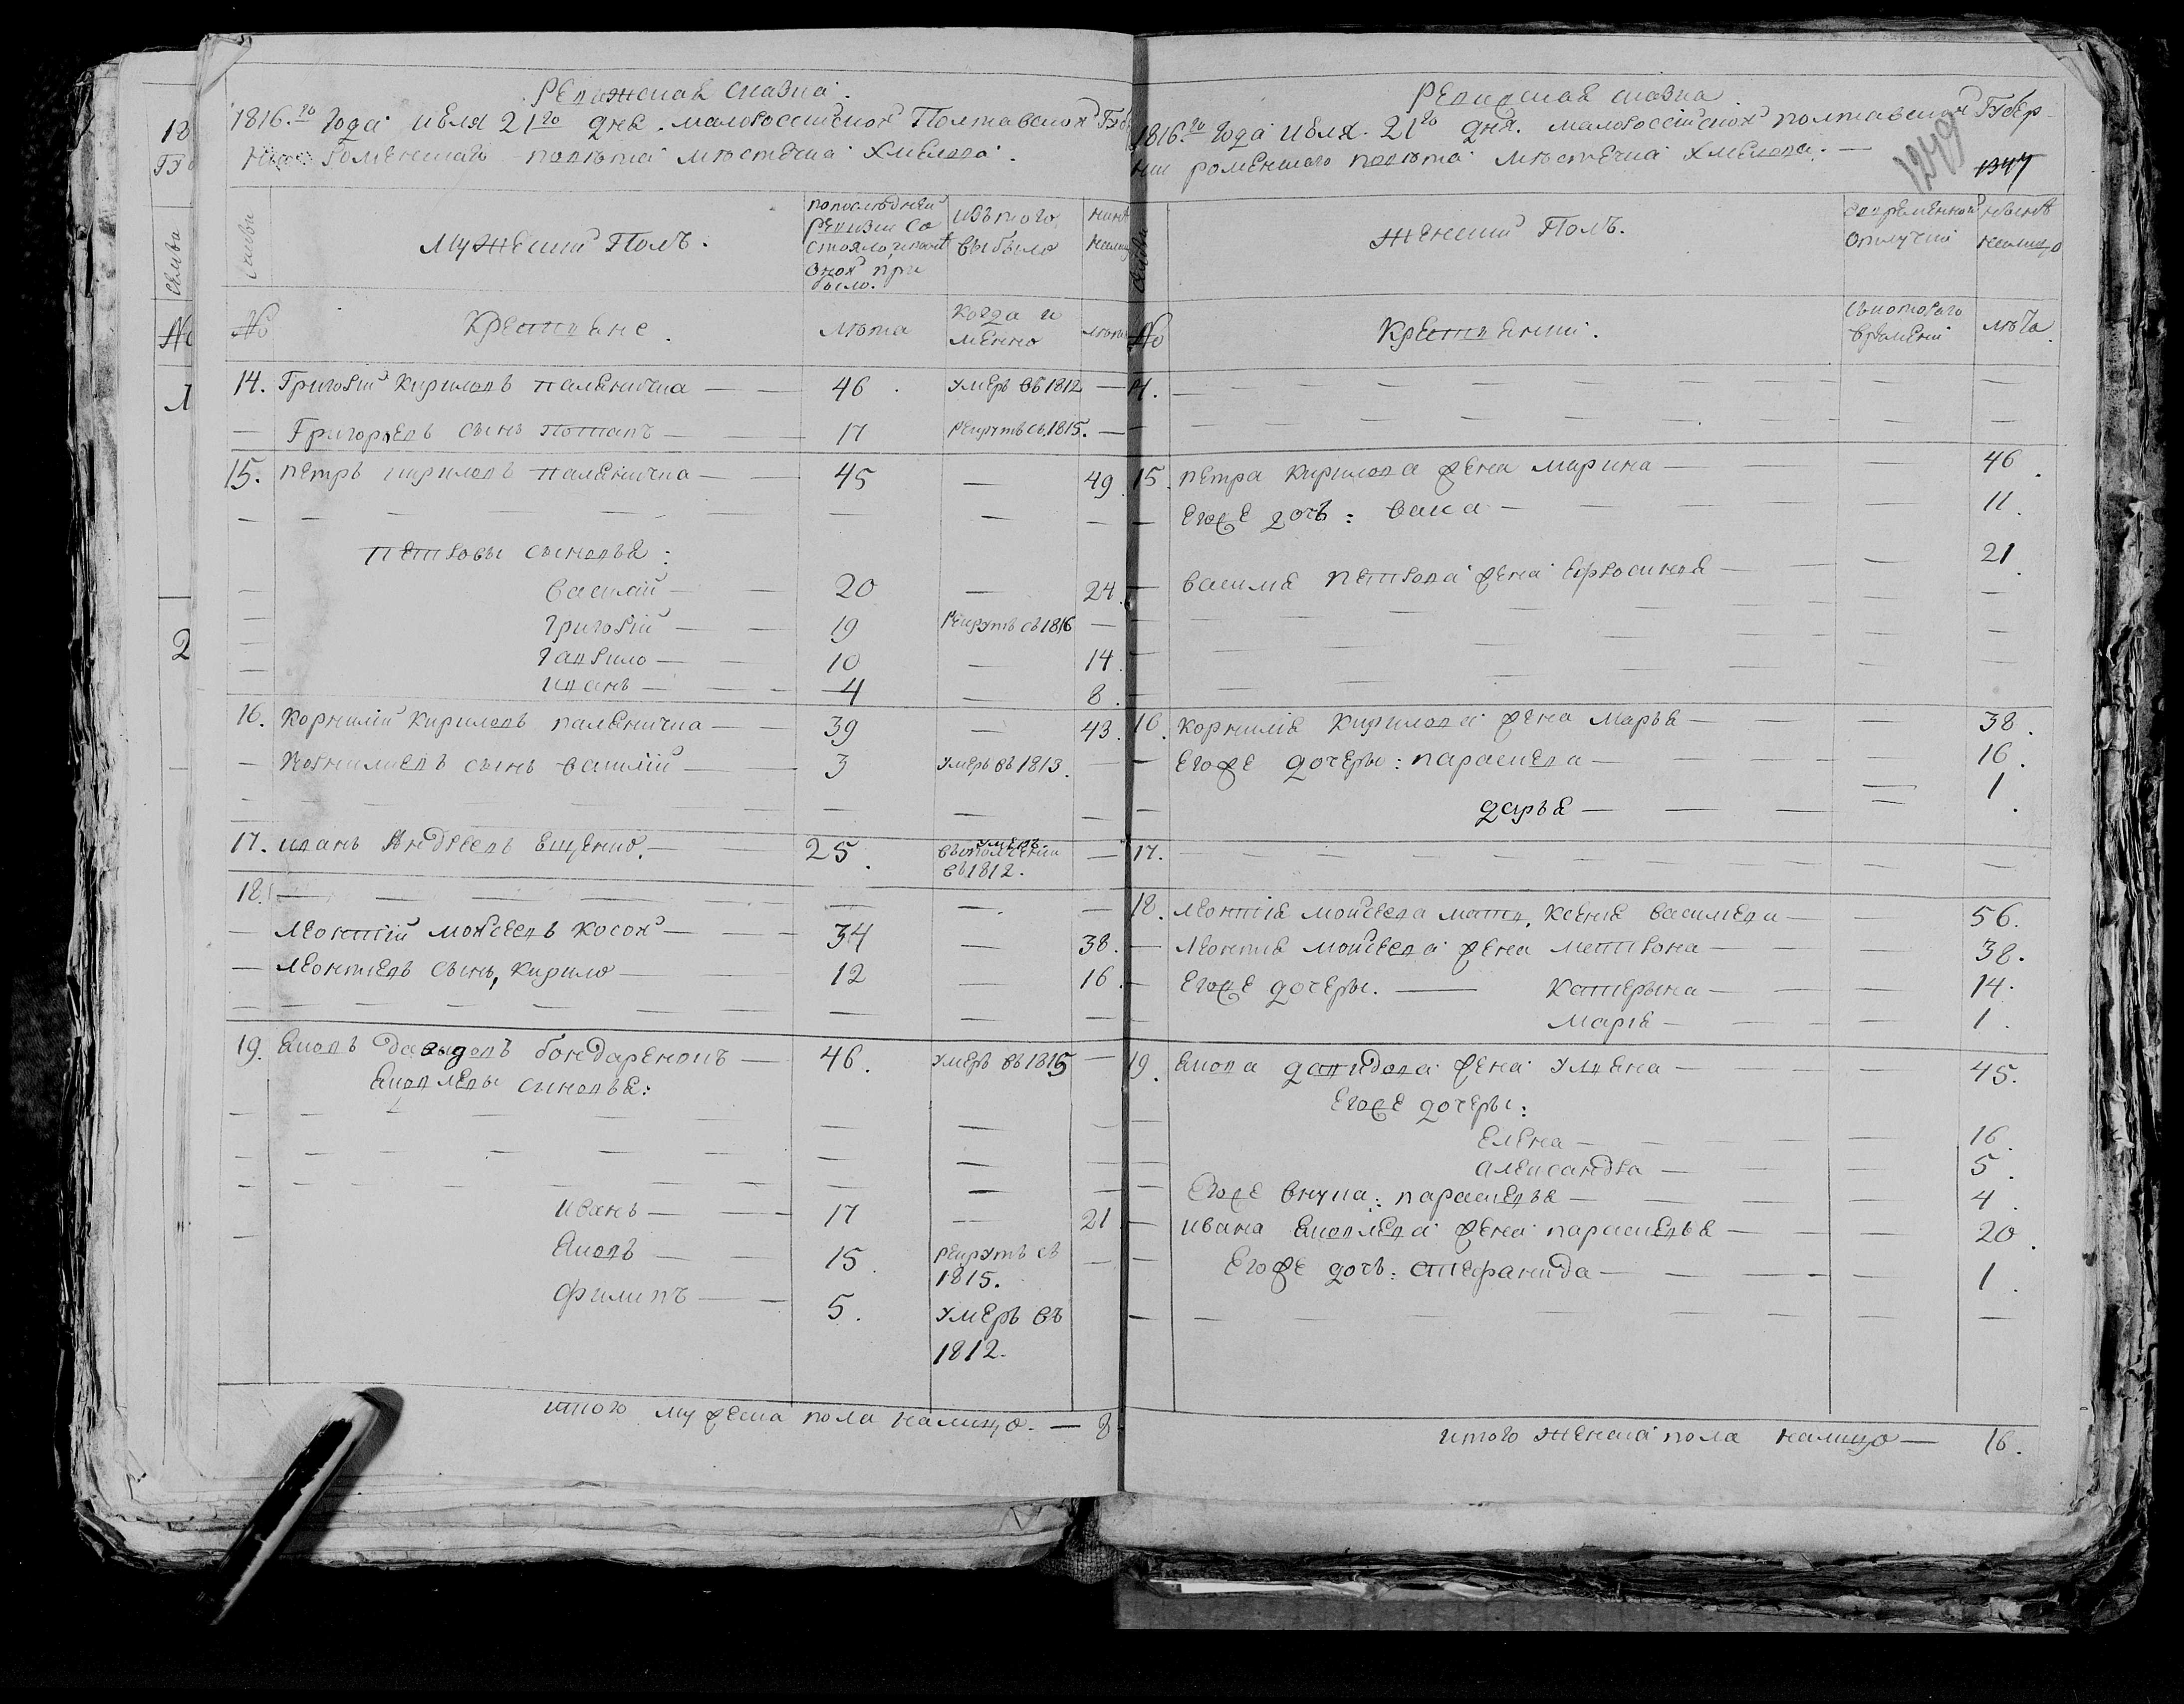 Ревижская сказка.
1816.го Года июля 21го дня. малороссийской Полтавской Губ
роменскаго повѣта мѣстечка Хмелова.
семьи
Мужеский Полъ.
попослѣдней ревизии состояло и послѣ оной прибыло.
изъ того выбыло
нинѣ
№
Крестьяне.
лѣта
когда имѣнно
лѣта
14. Григорій Кириловъ паленичка — 46. умеръ въ 1812 —
— Григорьевъ сынъ Потапъ — 17 рекрутъ съ 1815. —
15. петръ кириловъ паленичка — 45 — 49.
— — — — — — — —
петровы сыновья:
— василій — 20 — 24.
— григорій — 19 рекрутъ съ 1816 —
— гаврило — 10 — 14.
— иванъ — 4 — 8.
16. корнилій кириловъ паленичка — 39 — 43.
— корнилиевъ сынъ василій — 3 умеръ въ 1813. —
— — — — — — — —
17. иванъ Андреевъ Ещенко. — 25. умеръ въ ополчении въ 1812. —
18. — — — — — — — —
— леонтій мойсеевъ косой — 34 — 38.
— леонтиевъ сынъ, кирило — 12 — 16.
— — — — — — — —
19. яковъ давыдовъ бондаренокъ — 46. умеръ въ 1815 —
яковлевы сыновья:
— — — — — — — —
— — — — — — — —
— — — — — — — —
иванъ — 17 — 21
— яковъ — 15. рекрутъ съ 1815. —
филипъ — 5. умеръ въ 1812.
итого мужеска пола налицо. — 8
Ревизская сказка
1816.го года июля. 21го дня. малороссийской полтавской Губер-
нии роменского повѣта мѣстечка хмелова. —
1249
1347
женский Полъ.
во временной отлучки
нынѣ налицо
№
Крестьянки.
съ которого времени
лѣта.
14. — — — — — —
— — — — — —
15. петра кирилова жена марина — — 46.
— Егоже дочь: васа — — 11.
— василия петрова жена ефросиния — — 21.
— — — — — —
— — — — — —
— — — — — —
— — — — — —
16. корнилия кирилова жена марья — — 38.
— Егоже дочеры: параскева — — 16.
— дарья — — 1.
17. — — — — — —
18. леонтия мойсеева мать, ксения василева — — 56.
— леонтия мойсеева жена матрона — — 38.
— Егоже дочеры. — катерына — — 14.
— мария — — 1.
19. якова давидова жена ульяна — — 45.
Егоже дочеры:
Елена — — 16.
александра — — 5.
Егоже внука: параскевья — — 4.
— ивана яковлева жена параскевья — — 20.
Егоже дочь: стефанида — — 1.
— — — — — —
итого женска пола налицо — 16.
18
Губ
семьи
№
1
2